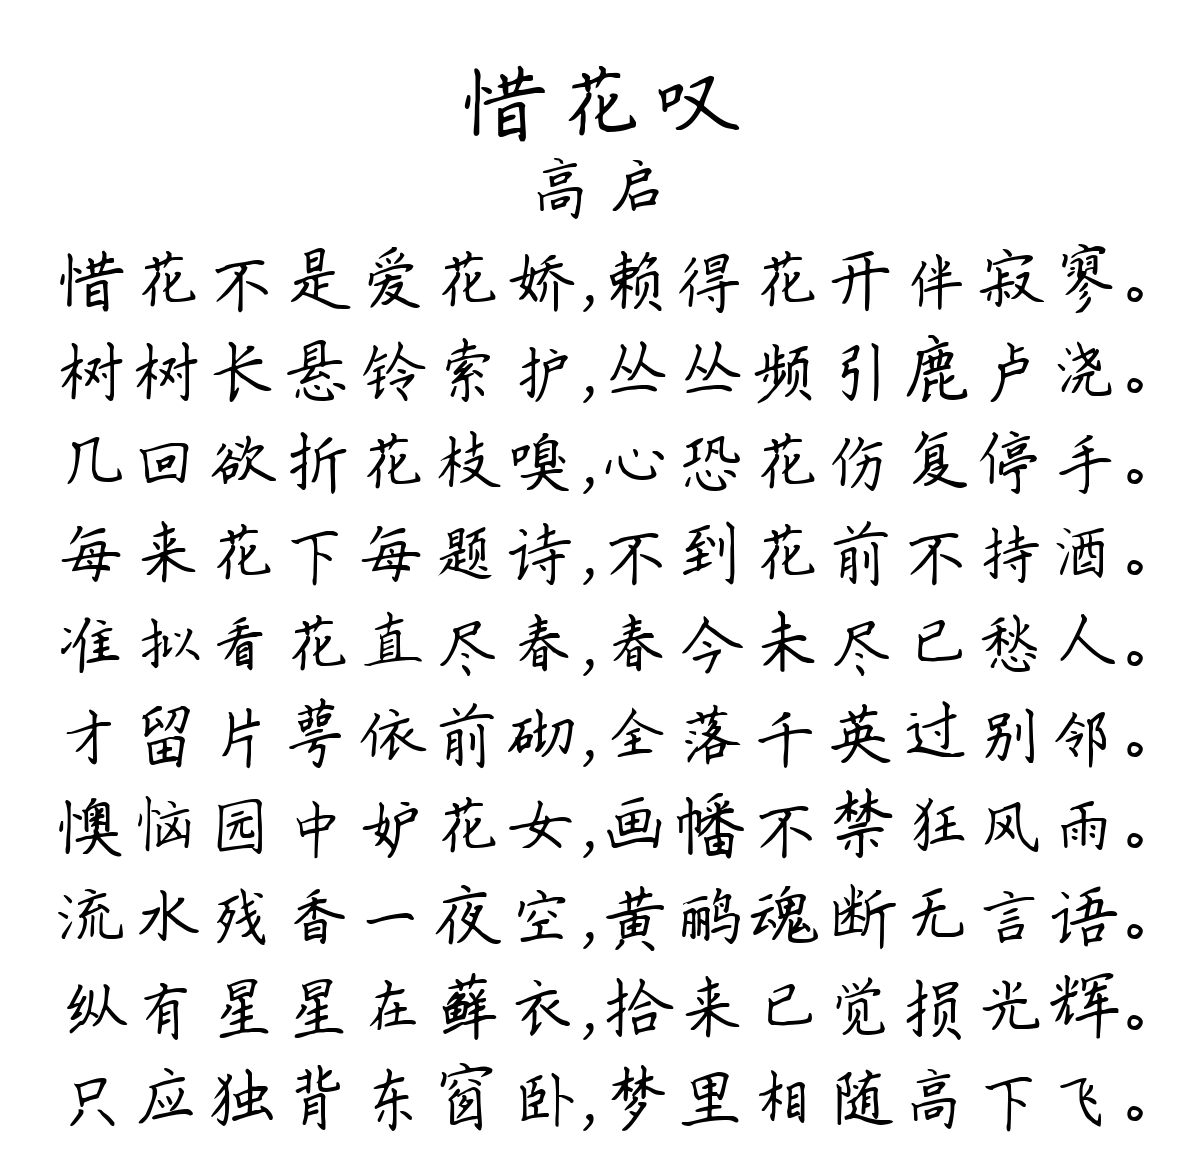 惜花叹
高启
惜花不是爱花娇,赖得花开伴寂寥。
树树长悬铃索护,丛丛频引鹿卢浇。
几回欲折花枝嗅,心恐花伤复停手。
每来花下每题诗,不到花前不持酒。
准拟看花直尽春,春今未尽已愁人。
才留片萼依前砌,全落千英过别邻。
懊恼园中妒花女,画幡不禁狂风雨。
流水残香一夜空,黄鹂魂断无言语。
纵有星星在藓衣,拾来已觉损光辉。
只应独背东窗卧,梦里相随高下飞。